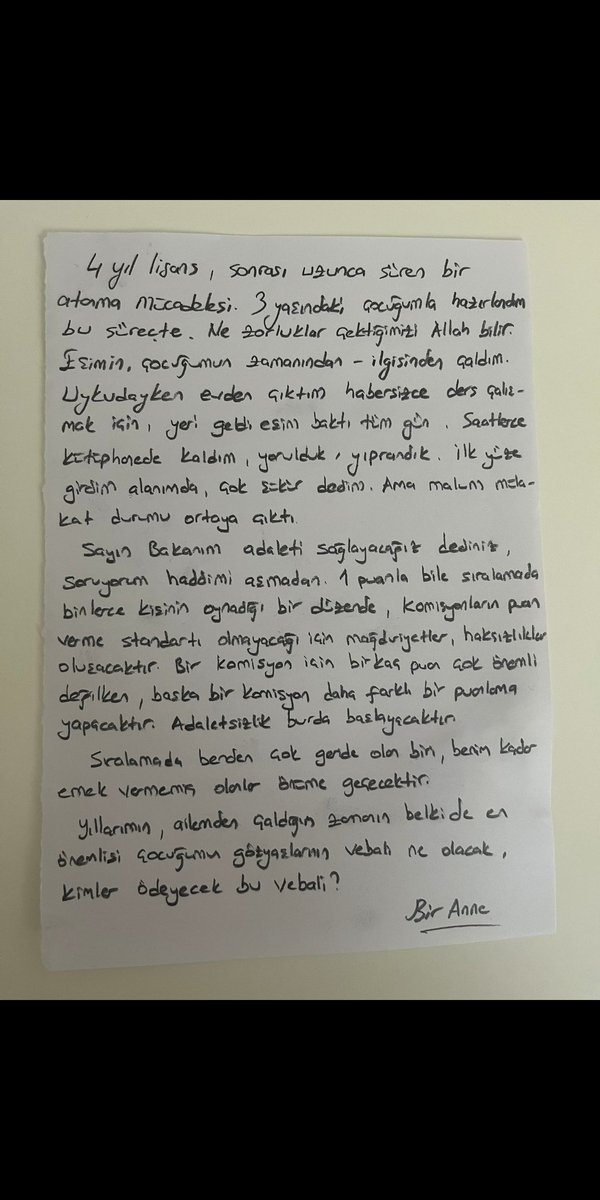 4 yıl lisans, sonrası uzunca süren bir
atama mücadelesi. 3 yaşındaki, çocuğumla hazırlandım
bu süreçte. Ne zorluklar çektiğimizi Allah bilir.
Eşimin, çocuğumun zamanından - ilgisinden çaldım.
Uykudayken evden çıktım habersizce ders çalış-
mak için, yeri geldi eşim baktı tüm gün. Saatlerce
kütüphanede kaldım, yorulduk, yıprandık. İlk yüze
girdim alanımda, çok şükür dedim. Ama malum müla-
kat durumu ortaya çıktı.
Sayın Bakanım adaleti sağlayacağız dediniz,
soruyorum haddimi aşmadan. 1 puanla bile sıralamada
binlerce kişinin oynadığı bir düzende, komisyonların puan
verme standartı olmayacağı için mağduriyetler, haksızlıklar
oluşacaktır. Bir komisyon için birkaç puan çok önemli
değilken, başka bir komisyon daha farklı bir puanlama
yapacaktır. Adaletsizlik burda başlayacaktır.
Sıralamada benden çok geride olan biri, benim kadar
emek vermemiş olanlar önüme geçecektir.
Yıllarımın, ailemden çaldığım zamanın belki de en
önemlisi çocuğumun gözyaşlarının vebali ne olacak,
kimler ödeyecek bu vebali?
Bir Anne